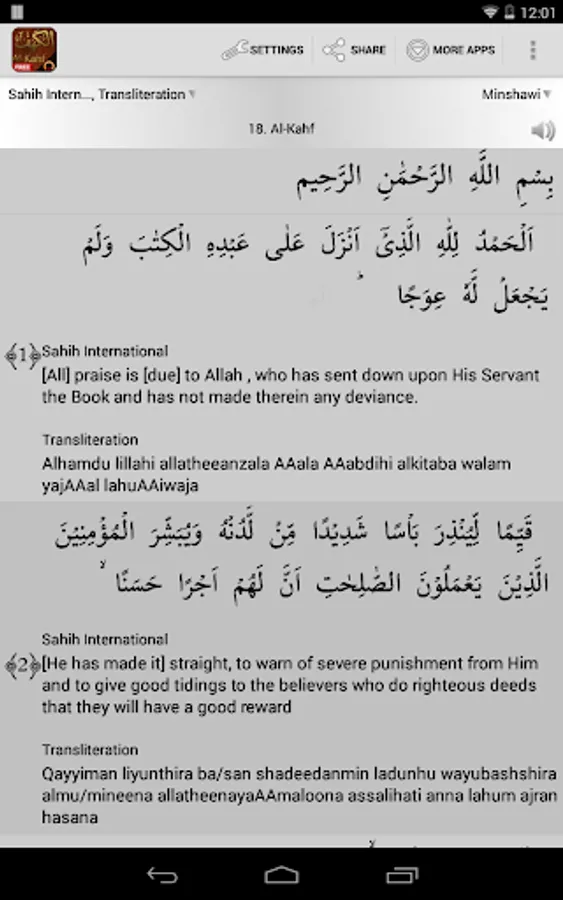 12:01
Al-Kahf
FREE
SETTINGS
SHARE
MORE APPS
Sahih Intern..., Transliteration
Minshawi
18. Al-Kahf
بِسْمِ اللَّهِ الرَّحْمَٰنِ الرَّحِيمِ
اَلْحَمْدُ لِلّٰهِ الَّذِىْۤ اَنْزَلَ عَلٰى عَبْدِهِ الْكِتٰبَ وَلَمْ
يَجْعَلْ لَّهٗ عِوَجًا ؕ
﴿1﴾ Sahih International
[All] praise is [due] to Allah , who has sent down upon His Servant
the Book and has not made therein any deviance.
Transliteration
Alhamdu lillahi allatheeanzala AAala AAabdihi alkitaba walam
yajAAal lahuAAiwaja
قَيِّمًا لِّيُنْذِرَ بَاْسًا شَدِيْدًا مِّنْ لَّدُنْهُ وَيُبَشِّرَ الْمُؤْمِنِيْنَ
الَّذِيْنَ يَعْمَلُوْنَ الصّٰلِحٰتِ اَنَّ لَهُمْ اَجْرًا حَسَنًا ۙ
Sahih International
﴿2﴾ [He has made it] straight, to warn of severe punishment from Him
and to give good tidings to the believers who do righteous deeds
that they will have a good reward
Transliteration
Qayyiman liyunthira ba/san shadeedanmin ladunhu wayubashshira
almu/mineena allatheenayaAAmaloona assalihati anna lahum ajran
hasana